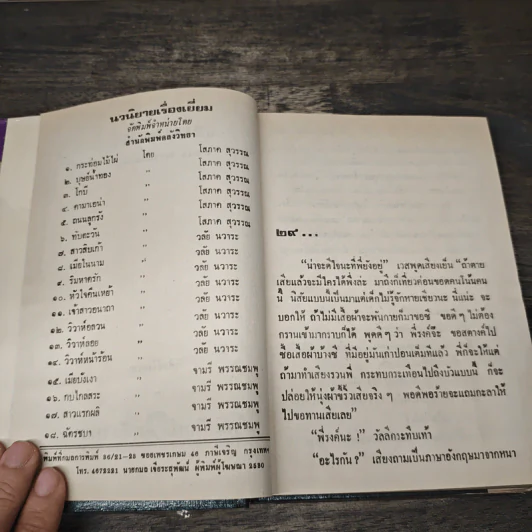 นวนิยายเรื่องเยี่ยม
จัดพิมพ์จำหน่ายโดย
สำนักพิมพ์คลังวิทยา
๑. กระท่อมไม้ไผ่ โดย โสภาค สุวรรณ
๒. บุษย์น้ำทอง " โสภาค สุวรรณ
๓. โกบี " โสภาค สุวรรณ
๔. คามาเอน่า " โสภาค สุวรรณ
๕. ถนนลูกรัง " โสภาค สุวรรณ
๖. ทับตะวัน " วลัย นวาระ
๗. สาวสิบเก้า " วลัย นวาระ
๘. เมียในนาม " วลัย นวาระ
๙. ริมหาดรัก " วลัย นวาระ
๑๐. หัวใจคืนเหย้า " วลัย นวาระ
๑๑. เจ้าสาวอนาถา " วลัย นวาระ
๑๒. วิวาห์อลวน " วลัย นวาระ
๑๓. วิวาห์ลอย " วลัย นวาระ
๑๔. วิวาห์หน้าร้อน " วลัย นวาระ
๑๕. เมียบังเงา " จามรี พรรณชมพู
๑๖. กบไกลสระ " จามรี พรรณชมพู
๑๗. สาวแรกผลิ " จามรี พรรณชมพู
๑๘. ฉัตรชบา " จามรี พรรณชมพู
พิมพ์ที่กมลการพิมพ์ 30/21-23 ซอยเพชรเกษม 46 ภาษีเจริญ กรุงเทพฯ
โทร. 4672021 นายกมล ผู้พิมพ์ผู้โฆษณา 2530
๒๙...
"น่าจะดีใจนะที่พี่ยังอยู่" เวสพูดเสียงเย็น "ถ้าตาย
เสียแล้วจะมีใครได้พึ่งล่ะ มาถึงก็เดี๋ยวค่อนขอดคนโน้นคน
นี้ นิสัยแบบนี้เป็นมาแต่เด็กไม่รู้จักหายเชียวนะ นี่แน่ะ จะ
บอกให้ ถ้าไม่มีเสื้อผ้าจะพันกายก็มาขอซี ขอดี ๆ ไม่ต้อง
กรานเข้ามากราบก็ได้ พูดดี ๆ ว่า พี่รงค์จ๊ะ ขอสตางค์ไป
ซื้อเสื้อผ้าบางซี ที่มีอยู่มันเก่าปอนเต็มทีแล้ว พี่ก็จะให้แต่
ถ้ามาทำเสียงรวนพี่ กระทบกระเทือนไปถึงบัวแบบนี้ ก็จะ
ปล่อยให้นุ่งผ้าขี้ริ้วเสียจริง ๆ พอดีพอร้ายจะแถมกะลาให้
ไปขอทานเสียเลย"
"พี่รงค์นะ !" วัลลีกระทืบเท้า
"อะไรกัน ?" เสียงถามเป็นภาษาอังกฤษมาจากหน้า